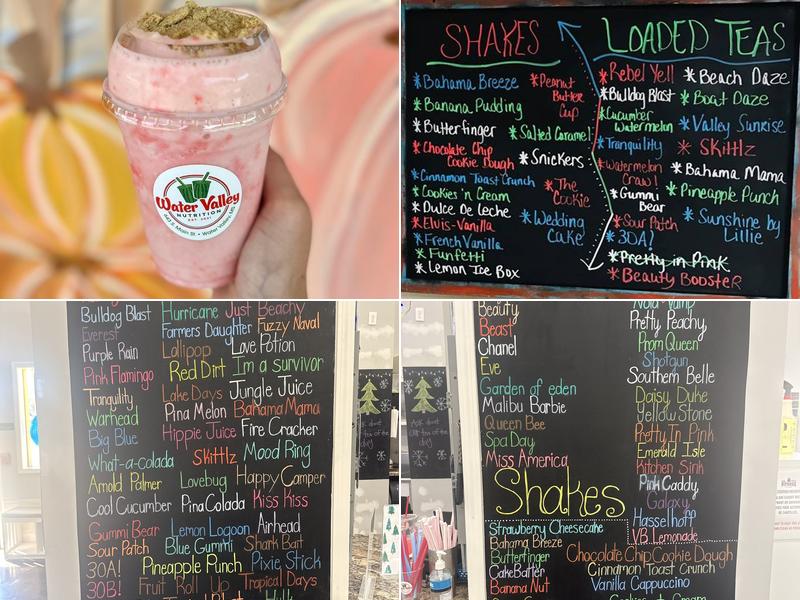 Water Valley
NUTRITION
EST. 2021
SHAKES
*Bahama Breeze
*Banana Pudding
*Butterfinger
*Chocolate Chip
Cookie Dough
*Cinnamon Toast Crunch
*Cookies 'n Cream
*Dulce De Leche
*Elvis-Vanilla
*French Vanilla
*Funfetti
*Lemon Ice Box
*Peanut
Butter
Cup
*Salted Caramel
*Snickers
*The
Cookie
*Wedding
Cake
LOADED TEAS
*Rebel Yell
*Bulldog Blast
*Cucumber
Watermelon
*Tranquility
*Watermelon
Crawl
*Gummi
Bear
*Sour Patch
*30A!
*Pretty in Pink
*Beauty Booster
*Beach Daze
*Boat Daze
*Valley Sunrise
*SKittlz
*Bahama Mama
*Pineapple Punch
*Sunshine by
Lillie
Bulldog Blast Hurricane Just Beachy
Everest Farmers Daughter Fuzzy Naval
Purple Rain Lollipop Love Potion
Pink Flamingo Red Dirt Im a survivor
Tranquility Lake Days Jungle Juice
Warhead Pina Melon Bahama Mama
Big Blue Hippie Juice Fire Cracker
What-a-colada SKittlz Mood Ring
Arnold Palmer Lovebug Happy Camper
Cool Cucumber Pina Colada Kiss Kiss
Gummi Bear Lemon Lagoon Airhead
Sour Patch Blue Gummi Shark Bait
30A! Pineapple Punch Pixie Stick
30B! Fruit Roll Up Tropical Days
Beauty
Beast
Chanel
Eve
Garden of eden
Malibu Barbie
Queen Bee
Spa Day
Miss America
Pretty Peachy
Prom Queen
Shotgun
Southern Belle
Daisy Duke
Yellow Stone
Pretty In Pink
Emerald Isle
Kitchen Sink
Pink Caddy
Galaxy
Hasselhoff
VB Lemonade
Shakes
Strawberry Cheesecake
Bahama Breeze
Butterfinger
Cake Batter
Banana Nut
Chocolate Chip Cookie Dough
Cinnamon Toast Crunch
Vanilla Cappuccino